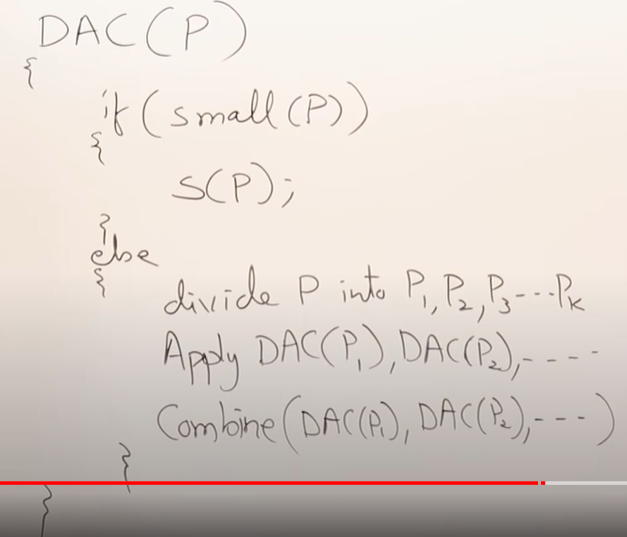 DAC(P)
{
if(small(P))
{
S(P);
}
else
{
divide P into P₁, P₂, P₃---Pₖ
Apply DAC(P₁), DAC(P₂),----
Combine(DAC(P₁), DAC(P₂),---)
}
}